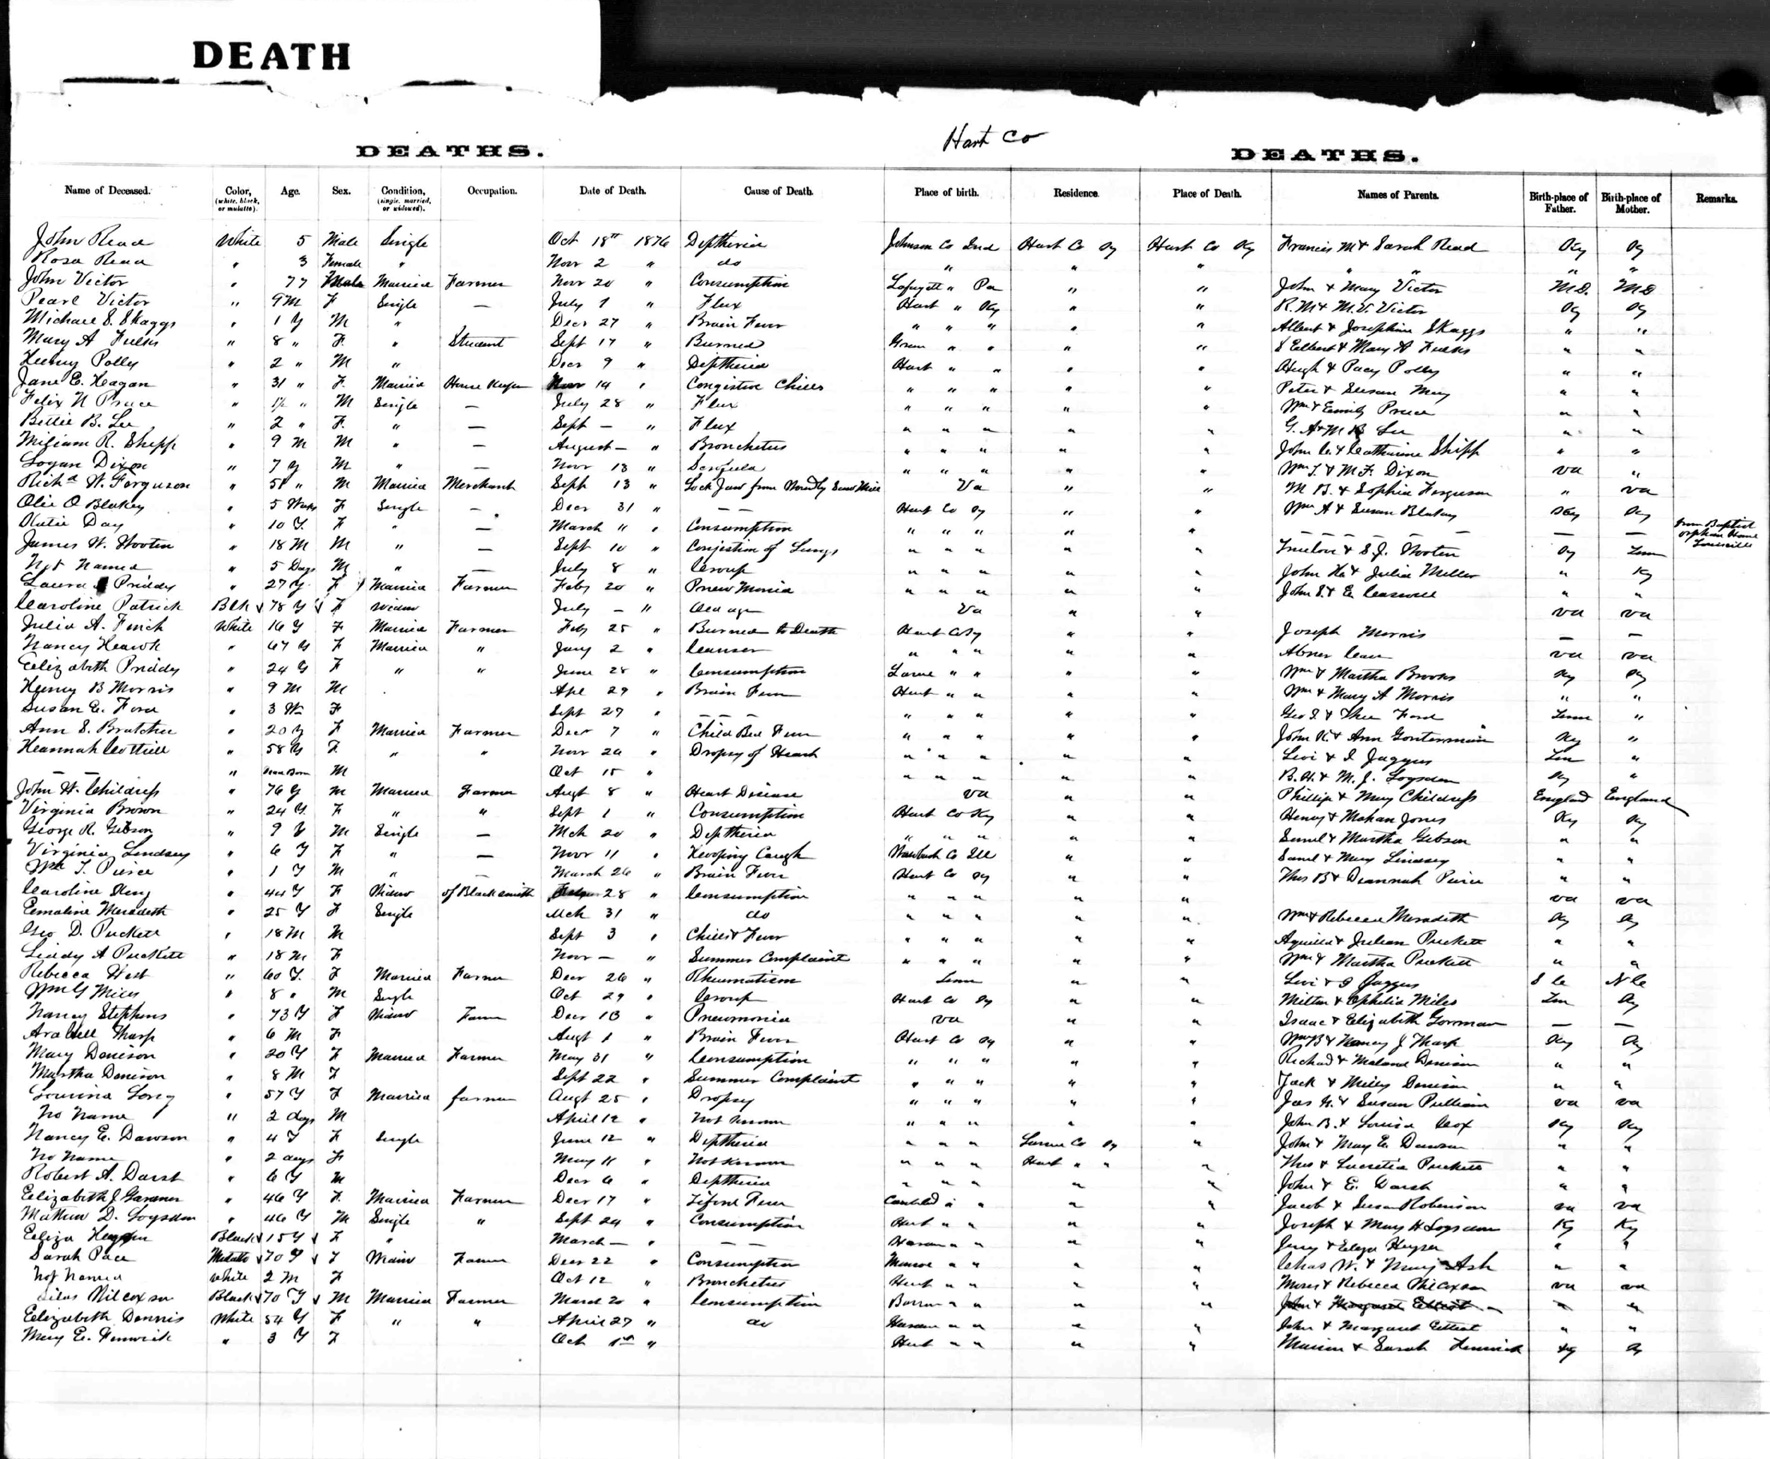 DEATH
Hart Co
DEATHS. DEATHS.
Name of Deceased. Color, (white, black, or mulatto). Age. Sex. Condition, (single, married, or widowed). Occupation. Date of Death. Cause of Death. Place of birth. Residence. Place of Death. Names of Parents. Birth-place of Father. Birth-place of Mother. Remarks.
John Read White 5 Male Single Oct 18th 1876 Diptheria Johnson Co Ind Hart Co Ky Hart Co Ky Francis M & Sarah Read Ky Ky
Rosa Read " 3 Female " Novr 2 " do " " " " " " "
John Victor " 77 Male Married Farmer Novr 20 " Consumption Lafayett " Pa " " John & Mary Victor M.D. M D
Pearl Victor " 9 M F Single — July 1 " Flux Hart " Ky " " R. M & M. V. Victor Ky Ky
Michael S. Skaggs " 1 y M " Decr 27 " Brain Fever " " " " " Albert & Josephine Skaggs " "
Mary A " 8 " F " Student Sept 17 " Burned " " " " & Mary A " "
Henry Polley " 2 " M " Decr 9 " Diptheria Hart " " " " Hugh & Polley " "
Jane E. Heagan " 31 " F. Married House Keeper Novr 14 " Congestive Chills " " " " " Peter & Susan " "
Felix N Pruce " " M Single — July 28 " Flux " " " " " Wm & Emily Pruce " "
Bettie B. Lee " 2 " F. " — Sept — " Flux " " " " " G. A & M B Lee " "
R. Shipp " 9 M M " — August — " Bronchetus " " " " " John C. & Catharine Shipp " "
Logan Dixon " 7 y M " — Novr 13 " " " " " " Wm T. & M. F. Dixon va "
Richd W. Ferguson " 51 " M Married Merchant Sept 13 " Lock Jaw from Va " " M B. & Sophia Ferguson " va
Olie O Blakey " 5 Weeks F Single — Decr 31 " — — Hart Co Ky " " Wm A & Susan Blakey Ky Ky
Katie Day " 10 Y. F " — March 11 " Consumption " " " " " — — — — — — — from Baptist Orphan Home Louisville
James W. Wooten " 18 M M " — Sept 10 " Conjestion of Lungs " " " " " & S. J. Wooten Ky Tenn
Not Named " 5 Days M " — July 8 " Croup " " " " " John H. & Julia Miller " Ky
Laura Priddy " 27 y. F Married Farmer Feby 20 " Pneumonia " " " " " John S. & E. " "
Caroline Patrick Blk 78 y F Widow July — " Old age Va " " va va
Julia A. Finch White 16 y F Married Farmer Feby 25 " Burned to Death Hart Co Ky " " Joseph Morris — —
Nancy " 67 y F Married " Jany 2 " Cancer " " " " " Abner va va
Elizabeth Priddy " 24 y F " " June 28 " Consumption Larue " " " " Wm & Martha Brooks Ky Ky
Henry B Morris " 9 M M Apl 29 " Brain Fever Hart " " " " Wm & Mary A Morris " "
Susan E. Ford " 3 W F Sept 27 " — — — " " " " " Geo S. & Ford Tenn "
Ann S. Bratcher " 20 y F Married Farmer Decr 7 " Child Bed Fever " " " " " John K. & Ann Gonterman Ky "
Hannah Cottrill " 58 y F " " Novr 20 " Dropsy of Heart " " " " " Levi & Jaggers Tenn "
— — " New Born M Oct 15 " " " " " " B. H. & M. J. Logsdon Ky "
John W. Childress " 76 y M Married Farmer Augt 8 " Heart Disease va " " Phillip & Mary Childress England England
Virginia Brown " 24 y. F " " Sept 1 " Consumption Hart Co Ky " " Henry & Mahan Jones Ky Ky
George R. Gibson " 9 y M Single — Mch 20 " Diptheria " " " " " Saml & Martha Gibson " "
Virginia Lindsey " 6 Y F " — Novr 11 " Hooping Cough Co Ill " " Saml & Mary Lindsey " "
Wm T. Pierce " 1 Y M " — March 26 " Brain Fever Hart Co Ky " " Thos B & Dearmah Pierce " "
Caroline King " 44 Y F Widow of Blacksmith 28 " Consumption " " " " " va va
Emaline Meradeth " 25 Y F Single Mch 31 " do " " " " " Wm & Rebecca Meradeth Ky Ky
Geo D. Puckett " 18 M M Sept 3 " Chills & Fever " " " " " Aquilla & Julian Puckett " "
Lindy A Puckett " 18 M F Novr — " Summer Complaint " " " " " Wm & Martha Puckett " "
Rebecca West " 60 Y. F Married Farmer Decr 26 " Rheumatism Tenn " " Levi & Jaggers S C N C
Wm G Miles " 8 " M Single Oct 29 " Croup Hart Co Ky " " Milton & Ophelia Miles Tenn Ky
Nancy Stephens " 73 Y F Widow Farm Decr 13 " Pneumonia va " " Isaac & Elizabeth Gorman — —
Ara Bell Tharp " 6 M F Augt 1 " Brain Fever Hart Co Ky " " Wm B & Nancy J Tharp Ky Ky
Mary Denison " 20 Y F Married Farmer May 31 " Consumption " " " " " Richard & Denison " "
Martha Denison " 8 M F Sept 22 " Summer Complaint " " " " " Jack & Milly Denison " "
Lourina Long " 57 Y F Married farmer Augt 25 " Dropsy " " " " " Jas & Susan Pulliam va va
No Name " 2 days M April 12 " Not known " " " " " John B. & Louisa Cox Ky Ky
Nancy E. Dawson " 4 Y F Single June 12 " Diptheria " " " Larue Co Ky " John & Mary E. Dawson " "
No Name " 2 days F May 11 " Not Known " " " Hart " " " Thos & Lucretia Puckett " "
Robert A. Darst " 6 Y M Decr 6 " Diptheria " " " " " John & E. Darst " "
Elizabeth J Gardner " 46 Y F. Married Farmer Decr 17 " Fever " " " " Jacob & Susan Robinson va va
D. Logsdon " 46 Y M Single " Sept 24 " Consumption Hart " " " " Joseph & Mary H Logsdon Ky Ky
Eliza Black 15 Y F " March — " — — " " " " Jerry & Eliza " "
Sarah Pace Mulatto 70 Y F Widow Farmer Decr 22 " Consumption Monroe " " " " Chas W. & Mary Ash " "
Not Named White 2 M F Oct 12 " Bronchetus Hart " " " " Moses & Rebecca Wilcoxson va va
Silas Wilcoxson Black 70 Y M Married Farmer March 20 " Consumption Barren " " " " John & Margaret " "
Elizabeth Dennis White 54 Y F " " April 27 " do " " " " John & Margaret " "
Mary E. Fenwick " 3 Y F Oct 1st " Hart " " " " Marion & Sarah Fenwick Ky Ky